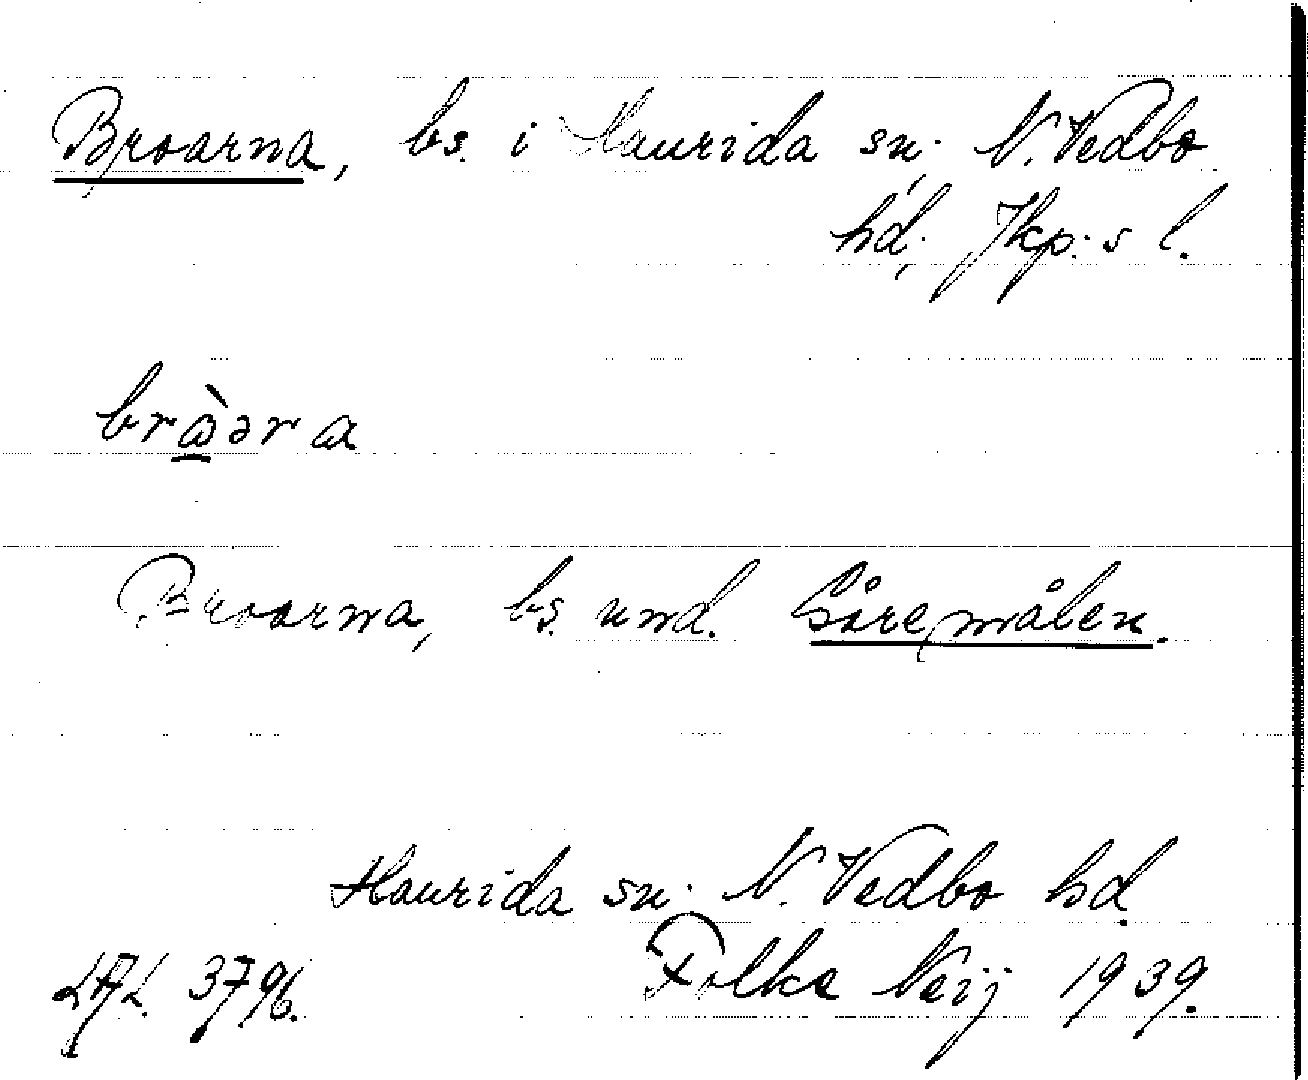 Broarna, bs. i Haurida sn. N. Vedbo
hd. Jkp:s l.
bròəra
Broarna, bs. und. Göremålen.
Haurida sn. N. Vedbo hd.
3796. Folke Neij 1939.